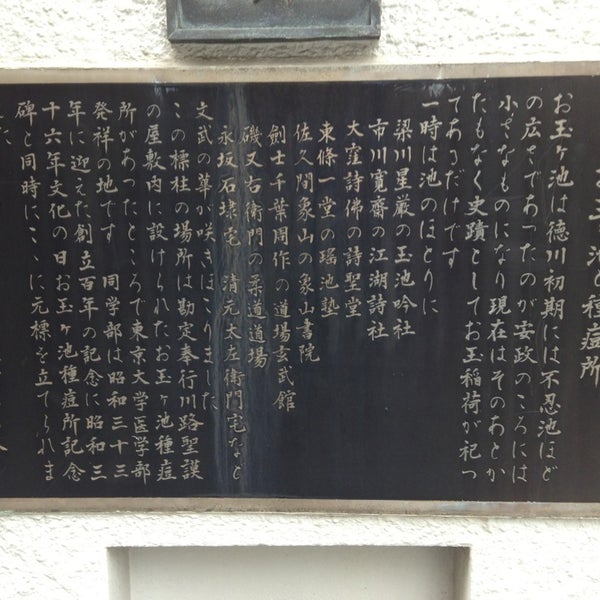 お玉ヶ池と種痘所
お玉ヶ池は徳川初期には不忍池ほど
の広さであったのが安政のころには
小さなものになり現在はそのあとか
たもなく史蹟としてお玉稲荷が祀っ
てあるだけです
一時は池のほとりに
梁川星厳の玉池吟社
市川寛齋の江湖詩社
大窪詩佛の詩聖堂
東條一堂の瑶池塾
佐久間象山の象山書院
劍士千葉周作の道場玄武館
磯又右衛門の柔道道場
永坂石埭宅 清元太左衛門宅など
文武の華が咲きほこりました
この標柱の場所は勘定奉行川路聖謨
の屋敷内に設けられたお玉ヶ池種痘
所があったところで東京大学医学部
発祥の地です 同学部は昭和三十三
年に迎えた創立百年の記念に昭和三
十六年文化の日お玉ヶ池種痘所記念
碑と同時にここに元標を立てられま
した